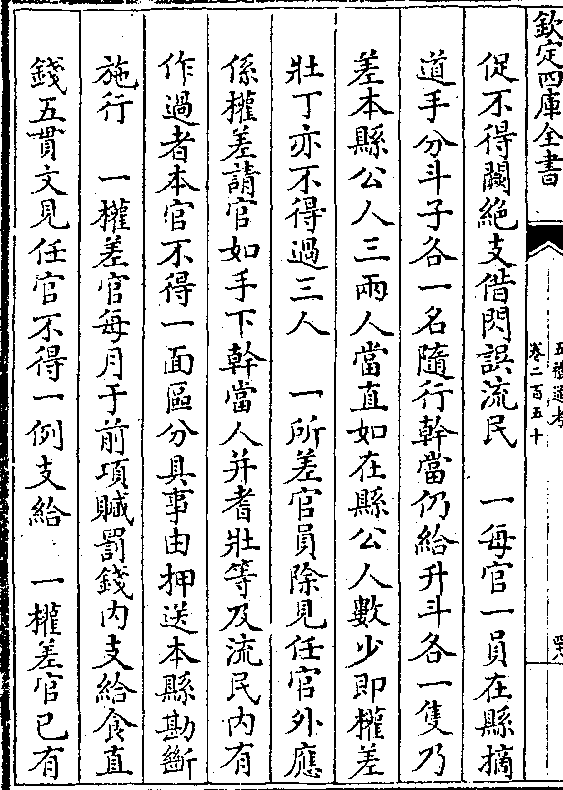 欽定四庫全書
五禮通考
卷二百五十
促不得闕絶支借悞誤流民　一每官一員在縣摘
道手分斗子各一名隨行幹當仍給升斗各一隻乃
差本縣公人三兩人當直如在縣公人數少即權差
壯丁亦不得過三人　一所差官員除見任官外應
係權差請官如手下幹當人并耆壯等及流民内有
作過者本官不得一面區分具事由押送本縣勘斷
施行　一權差官每月于前項贓罰錢内支給食直
錢五貫文見任官不得一例支給　一權差官已有